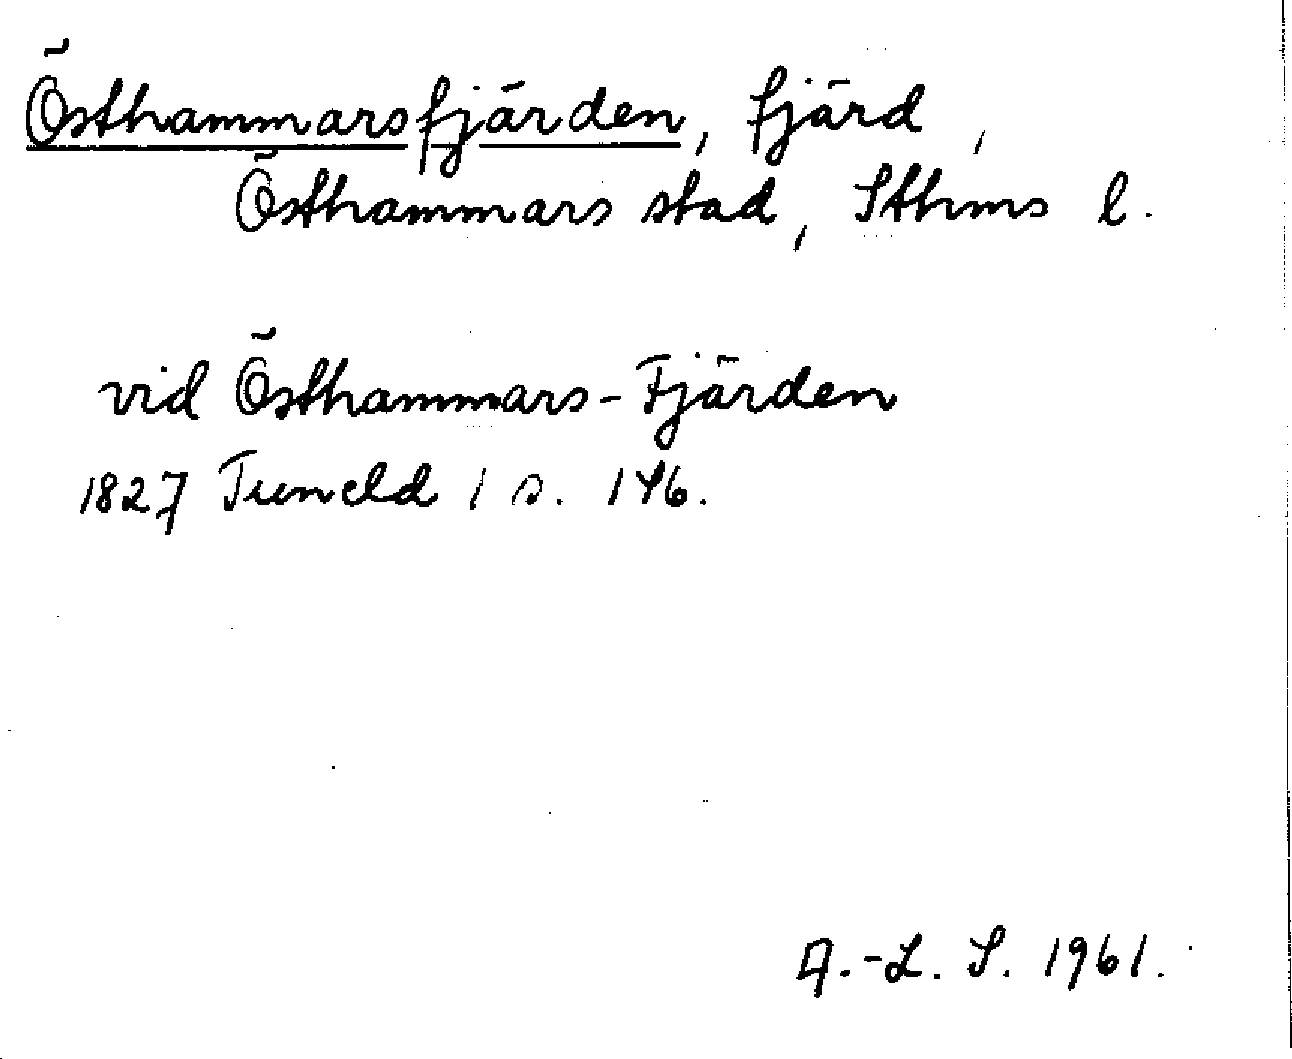 Östhammarsfjärden, fjärd,
Östhammars stad, Sthms l.
vid Östhammars-Fjärden
1827 Tuneld 1 s. 146.
A.-L. S. 1961.